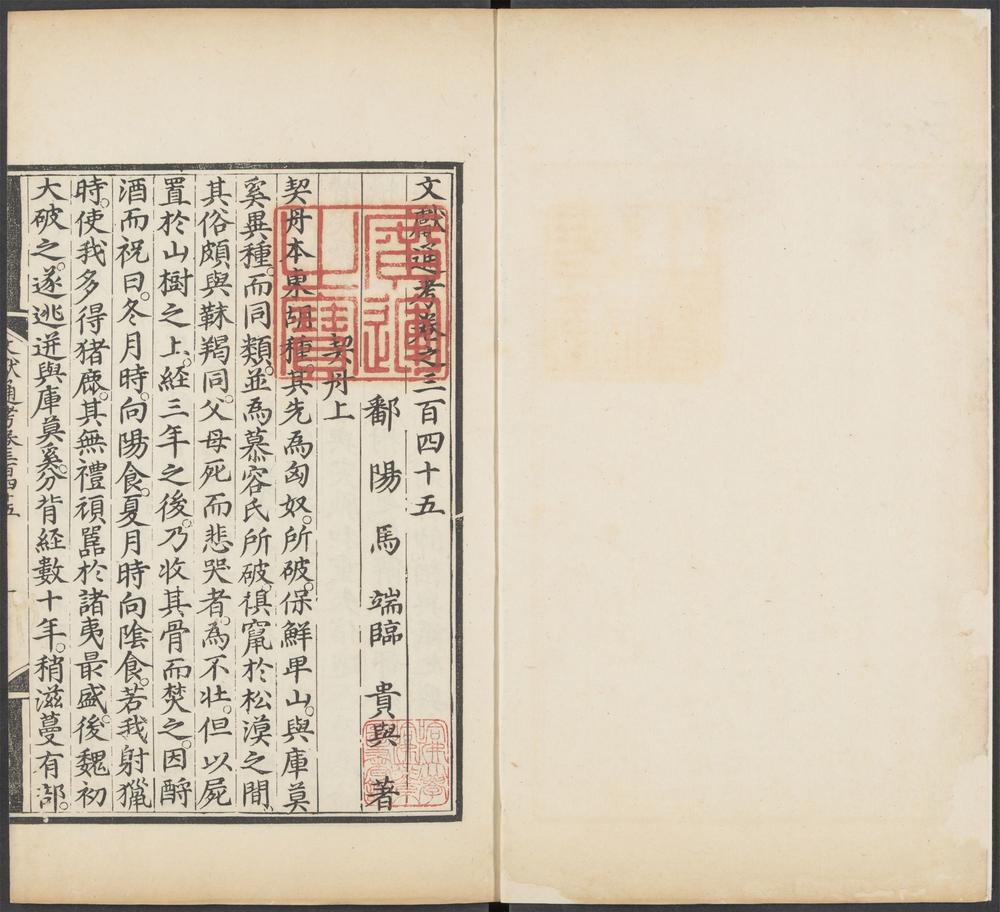 文獻通考卷之三百四十五
鄱陽馬端臨貴與著
契丹上
契丹本東胡種。其先爲匈奴。所破。保鮮卑山。與庫莫
奚異種。而同類。並爲慕容氏所破。俱竄於松漠之間。
其俗頗與靺羯同。父母死而悲哭者。爲不壯。但以屍
置於山樹之上。經三年之後。乃收其骨而焚之。因酹
酒而祝曰。冬月時。向陽食。夏月時向陰食。若我射獵
時。使我多得猪鹿。其無禮頑嚚於諸夷最盛。後魏初
大破之。遂逃迸與庫莫奚。分背經數十年。稍滋蔓有部。
文獻通考卷三百四十五
一
廣運之寶